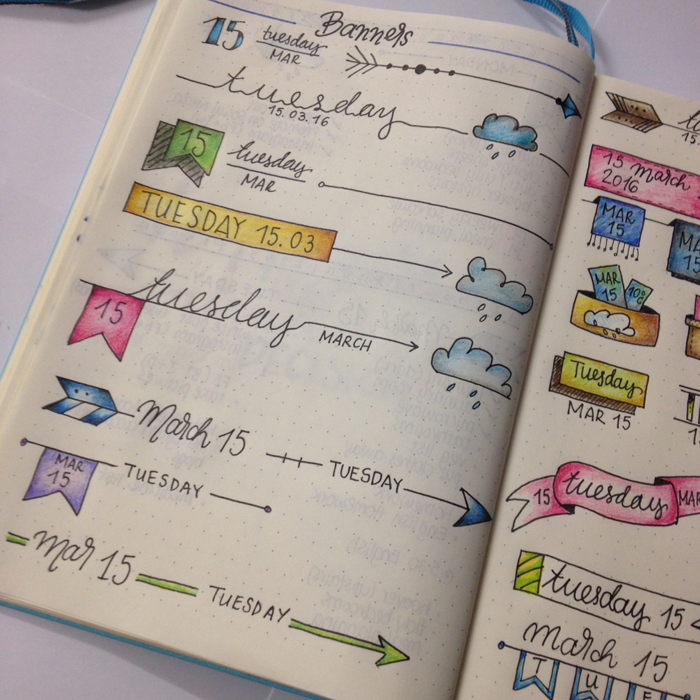 Banners
15 tuesday
MAR
tuesday
15.03.16
15 tuesday
MAR
TUESDAY 15.03
tuesday
15 MARCH
March 15 TUESDAY
MAR
15 TUESDAY
Mar 15 TUESDAY
15 march
2016
MAR
15
MAR
15
MAR
15 10°
Tuesday
MAR 15
15 tuesday MAR
tuesday 15
march 15
T U E